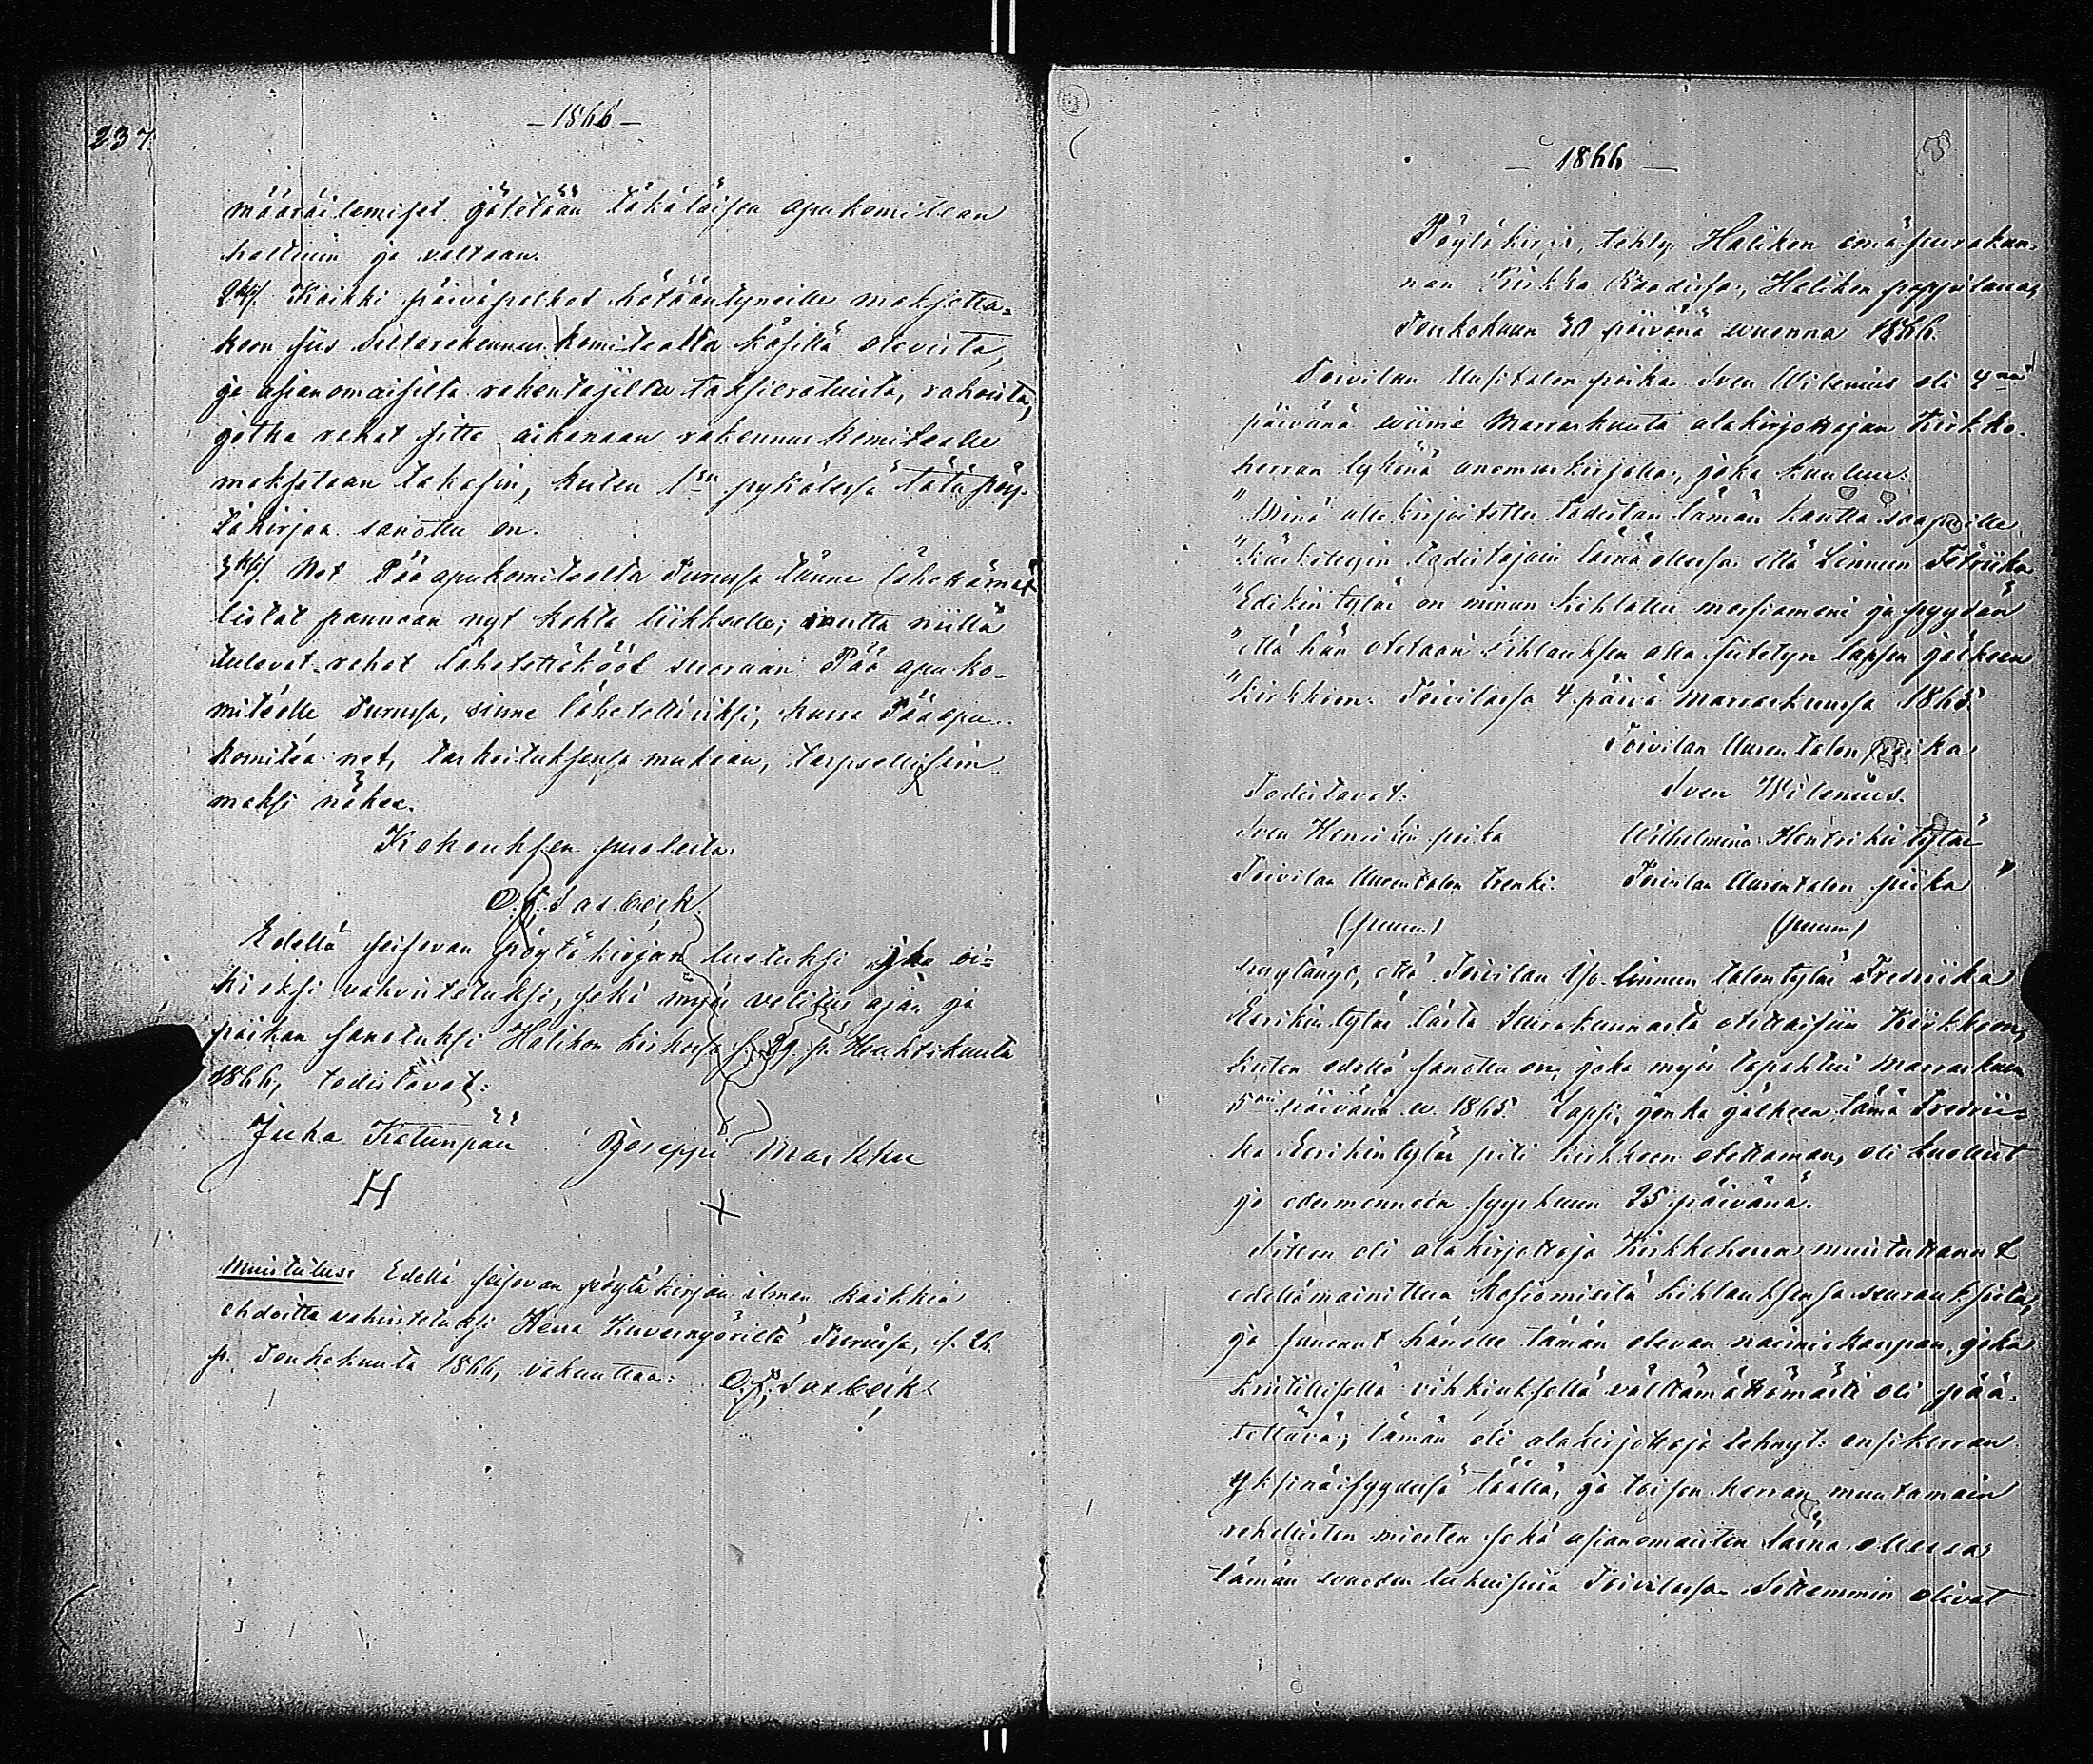 237.
—1866—
määräilemiset jätetään täkäläisen apukomitean
haltuun ja valtaan.
2ksi. Kaikki päiväpalkat hätääntyneille maksetta-
koon siis siltarakennus komitealta käsillä olevista,
ja asianomaisilta rakentajilta taksieratuista, rahoista,
jotka rahat sitte aikanaan rakennus komitealle
maksetaan takasin, kuten 1sn pykälässä tätä pöy-
täkirjaa sanottu on.
3ksi. Net Pää apukomitealta Turussa tänne lähettämät
listat pannaan nyt kohta liikkeelle; mutta niillä
tulevat rahat lähetettäkööt suoraan Pää apu ko-
mitealle Turussa, sinne lähetettäviksi, kussa Pääapu
komitea net, tarkoituksensa mukaan, tarpeellisim-
maksi näkee.
Kokouksen puolesta.
O. F. Sasbeck.
Edellä seisovan pöytäkirjan luetuksi ja oi-
kiaksi vahvistetuksi, sekä myös valitus ajan ja
paikan sanotuksi Halikon kirkossa s. 29. p. Huhtikuuta
1866, todistavat:
Juha Katunpää Joseppi Markku
H X
Muistutus: Edellä seisovan pöytäkirjan ilman kaikkia
ehdoitta vahvistetuksi Herra Kuvernyöriltä Turussa, s. 26.
p. Toukokuuta 1866, vakuuttaa: O. F. Sasbeck.
— 1866 —
Pöytäkirja, tehty Halikon emäseurakun-
nan Kirkko Raadissa, Halikon pappilassa,
Toukokuun 30 päivänä vuonna 1866.
Toivilan Uusitalon poika Sven Wilenius oli 4nä
päivänä viime Marraskuuta alakirjottajan Kirkko-
herran tykönä anomuskirjalla, joka kuuluu:
"Minä alla kirjoitettu todistan tämän kautta saapuville
"kuskeltujin todistajain läsnä ollessa että Linnun Fetriika
"Edikin tytär on minun kihlattu morsiameni ja pyydän
"että hän otetaan kihlauksen alla siitetyn lapsen jälkeen
"kirkkoon. Toivilassa 4. päivä Marraskuussa 1865.
Toivilan Uuren talon poika
Todistavat: Sven Wilenius.
Sven Henrikin poika Wilhelmina Henrikin tytär
Toivilan Uurentalon trenki. Toivilan Uurentalon piika."
(puum.) (puum.)
että Toivilan Iso-Linnun talontytär Fredriika
Eerikintytär tästä Seurakunnasta otettaisiin Kirkkoon,
kuten edellä sanottu on, joka myös tapahtui Marraskuun
5nä päivänä v. 1865. Lapsi, jonka jälkeen tämä Fredrii-
ka Eerikintytär piti kirkkoon otettaman, oli kuollut
jo edesmenneen Syyskuun 25 päivänä.
Sitten oli alakirjottaja Kirkkoherra muistuttanut
edellämainittua kosiomiestä kihlauksensa seurauksista,
ja sanonut hänelle tämän olevan naimiskaupan, joka
kristillisellä vihkiuksellä välttämättömästi oli pää-
tettävä; tämän oli alakirjottaja tehnyt: ensikerran
yksinäisyydessä täällä, ja toisen kerran muutamain
rehellisten miesten sekä asianomaisten läsnä ollessa,
tämän vuoden lukusissa Toivilassa. Sittemmin olivat